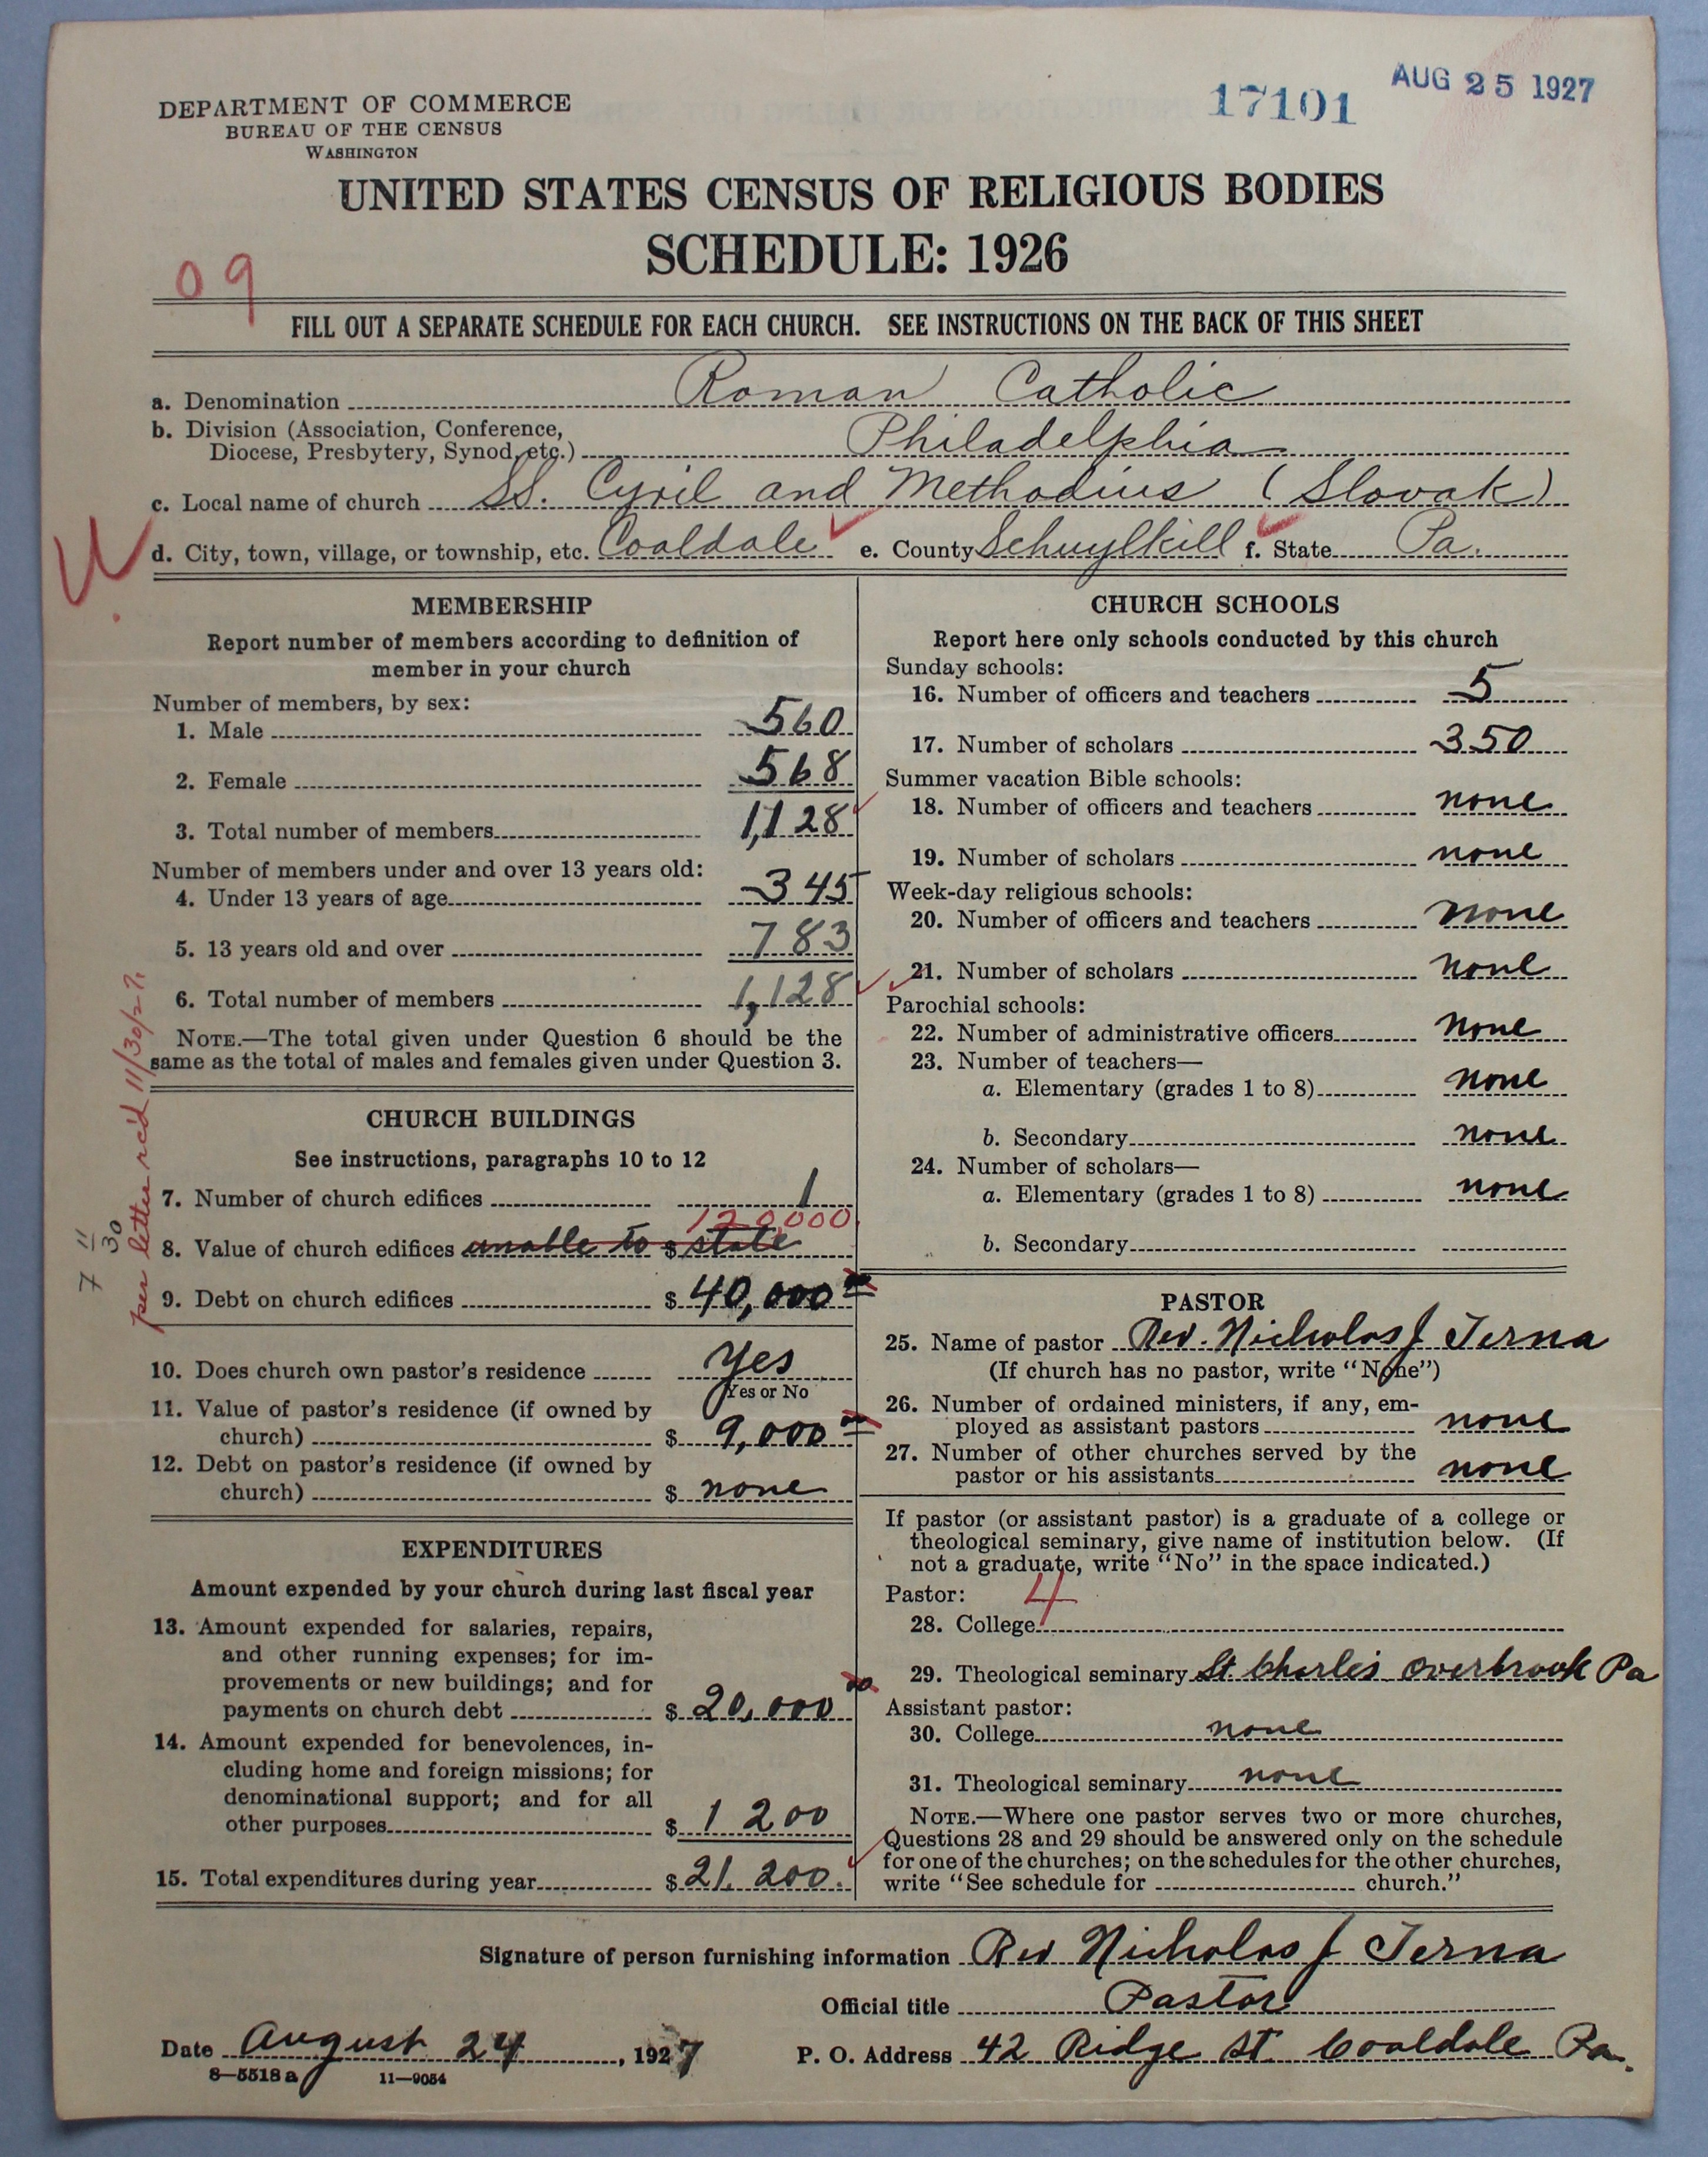 17101
AUG 25 1927
DEPARTMENT OF COMMERCE
BUREAU OF THE CENSUS
WASHINGTON
UNITED STATES CENSUS OF RELIGIOUS BODIES
SCHEDULE: 1926
09
FILL OUT A SEPARATE SCHEDULE FOR EACH CHURCH. SEE INSTRUCTIONS ON THE BACK OF THIS SHEET
a. Denomination Roman Catholic
b. Division (Association, Conference,
Diocese, Presbytery, Synod, etc.) Philadelphia
c. Local name of church SS. Cyril and Methodius (Slovak)
d. City, town, village, or township, etc. Coaldale e. County Schuylkill f. State Pa.
MEMBERSHIP
Report number of members according to definition of
member in your church
Number of members, by sex:
1. Male 560
2. Female 568
3. Total number of members 1,128
Number of members under and over 13 years old:
4. Under 13 years of age 345
5. 13 years old and over 783
6. Total number of members 1,128
NOTE.—The total given under Question 6 should be the
same as the total of males and females given under Question 3.
CHURCH BUILDINGS
See instructions, paragraphs 10 to 12
7. Number of church edifices 1
120,000
8. Value of church edifices unable to $ state
9. Debt on church edifices $ 40,000 00
per letter rc'd 11/30/27.
7 11/30
10. Does church own pastor's residence Yes
Yes or No
11. Value of pastor's residence (if owned by
church) $ 9,000 00
12. Debt on pastor's residence (if owned by
church) $ none
EXPENDITURES
Amount expended by your church during last fiscal year
13. Amount expended for salaries, repairs,
and other running expenses; for im-
provements or new buildings; and for
payments on church debt $ 20,000 00
14. Amount expended for benevolences, in-
cluding home and foreign missions; for
denominational support; and for all
other purposes $ 1200
15. Total expenditures during year $ 21,200.
CHURCH SCHOOLS
Report here only schools conducted by this church
Sunday schools:
16. Number of officers and teachers 5
17. Number of scholars 350
Summer vacation Bible schools:
18. Number of officers and teachers none
19. Number of scholars none
Week-day religious schools:
20. Number of officers and teachers none
21. Number of scholars none
Parochial schools:
22. Number of administrative officers none
23. Number of teachers—
a. Elementary (grades 1 to 8) none
b. Secondary none
24. Number of scholars—
a. Elementary (grades 1 to 8) none
b. Secondary
PASTOR
25. Name of pastor Rev. Nicholas J Terna
(If church has no pastor, write "None")
26. Number of ordained ministers, if any, em-
ployed as assistant pastors none
27. Number of other churches served by the
pastor or his assistants none
If pastor (or assistant pastor) is a graduate of a college or
theological seminary, give name of institution below. (If
not a graduate, write "No" in the space indicated.)
Pastor: 4
28. College
29. Theological seminary St. Charles Overbrook Pa
Assistant pastor:
30. College none
31. Theological seminary none
NOTE.—Where one pastor serves two or more churches,
Questions 28 and 29 should be answered only on the schedule
for one of the churches; on the schedules for the other churches,
write "See schedule for church."
Signature of person furnishing information Rev Nicholas J Terna
Official title Pastor
Date August 24, 1927 P. O. Address 42 Ridge St. Coaldale Pa.
8—5518a 11—9054